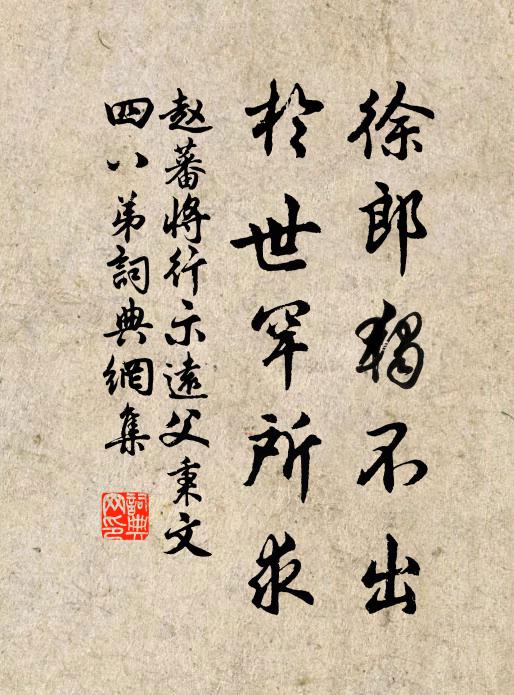 徐郎独不出
於世罕所求
赵蕃将行示远父秉文
四八弟詞典網集
詞典網印